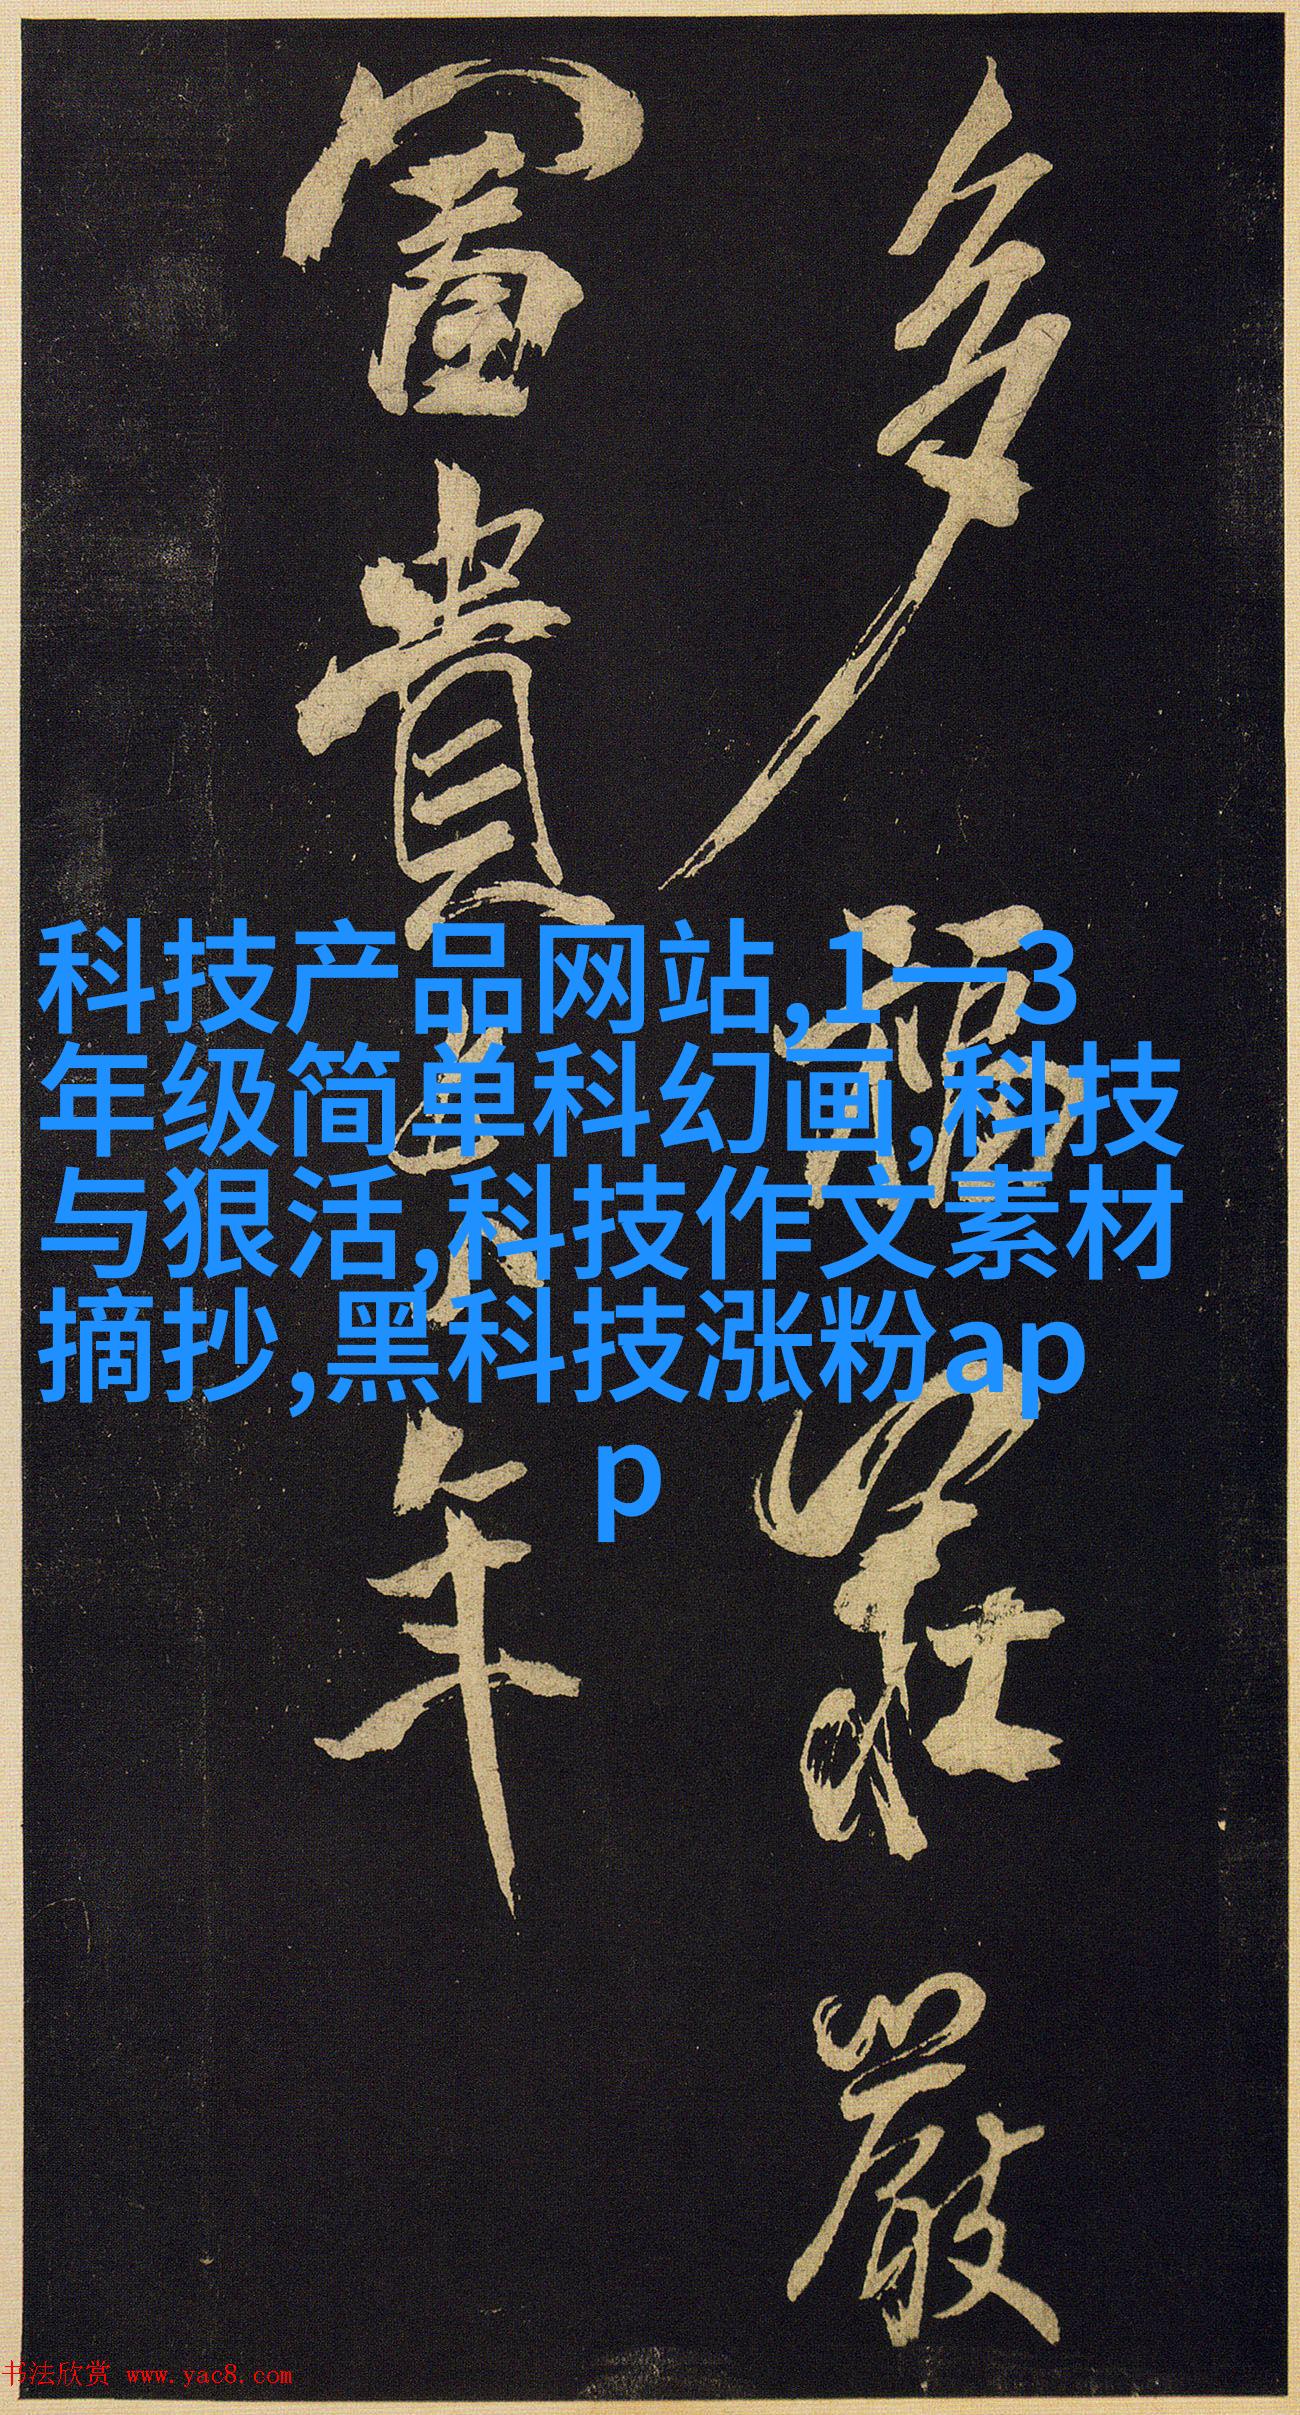 多福莊嚴
富貴長年
科技产品网站,1一3
年级简单科幻画,科技
与狠活,科技作文素材
摘抄,黑科技涨粉ap
p
书法欣赏 www.yac8.com